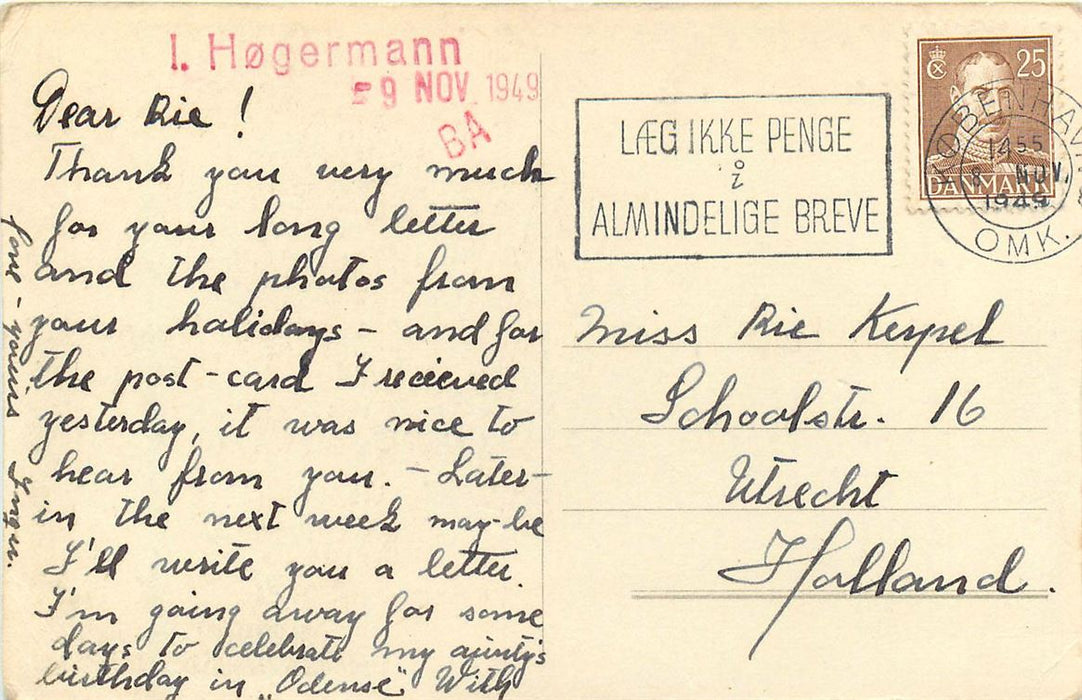 I. Høgermann
-9 NOV 1949
BA
Dear Rie!
Thank you very much
for your long letter
and the photos from
your holidays - and for
the post-card I recieved
yesterday, it was nice to
hear from you. - Later -
in the next week may-be
I'll write you a letter.
I'm going away for some
days to celebrate my aunty's
birthday in „Odense" With
love - yours Inger.
LÆG IKKE PENGE
i
ALMINDELIGE BREVE
25
DANMARK
KØBENHAVN
1455
8. NOV.
1949
OMK.
Miss Rie Keypel
Schoolstr. 16
Utrecht
Holland.